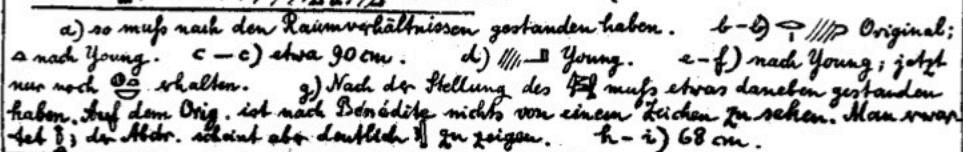 a) so muß nach den Raumverhältnissen gestanden haben. b-b) Original;
nach Young. c-c) etwa 90 cm. d) Young. e-f) nach Young; jetzt
nur noch erhalten. g) Nach der Stellung des muß etwas daneben gestanden
haben. Auf dem Orig. ist nach Bénédite nichts von einem Zeichen zu sehen. Man erwar
tet ; der Abdr. scheint aber deutlich zu zeigen. h-i) 68 cm.